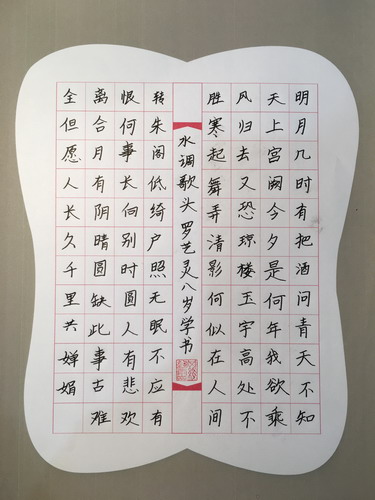 明月几时有把酒问青天不知
天上宫阙今夕是何年我欲乘
风归去又恐琼楼玉宇高处不
胜寒起舞弄清影何似在人间
水调歌头 罗艺灵八岁学书
转朱阁低绮户照无眠不应有
恨何事长向别时圆人有悲欢
离合月有阴晴圆缺此事古难
全但愿人长久千里共婵娟